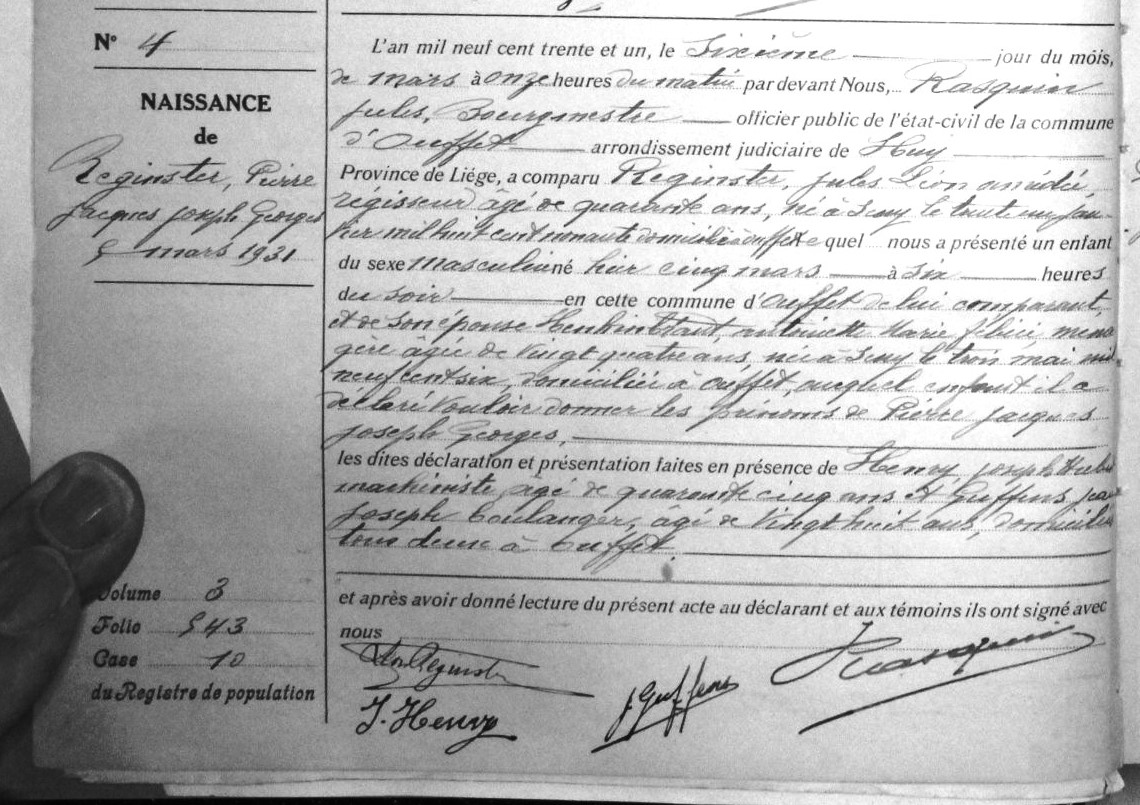 N° 4
NAISSANCE
de
Reginster, Pierre
Jacques Joseph Georges
5 mars 1931
L'an mil neuf cent trente et un, le sixième jour du mois,
de mars à onze heures du matin par devant Nous, Rasquin
Jules, Bourgmestre officier public de l'état-civil de la commune
d'Ouffet arrondissement judiciaire de Huy
Province de Liége, a comparu Reginster, Jules Léon Amédée,
régisseur âgé de quarante ans, né à Seny le trente un jan-
vier mil huit cent nonante domicilié à Ouffet quel nous a présenté un enfant
du sexe masculin né hier cinq mars à six heures
du soir en cette commune d'Ouffet de lui comparant,
et de son épouse Antoinette Marie ména
gère âgée de vingt quatre ans, née à Seny le trois mai mil
neuf cent six, domiciliée à Ouffet, auquel enfant il a
déclaré vouloir donner les prénoms de Pierre Jacques
Joseph Georges,
les dites déclaration et présentation faites en présence de Henry, Joseph
machiniste, âgé de quarante cinq ans et Guffens,
Joseph boulanger, âgé de vingt huit ans, domiciliés
tous deux à Ouffet.
et après avoir donné lecture du présent acte au déclarant et aux témoins ils ont signé avec
nous
Reginster
J. Henry
J. Guffens
J Rasquin
Volume 3
Folio 543
Case 10
du Registre de population